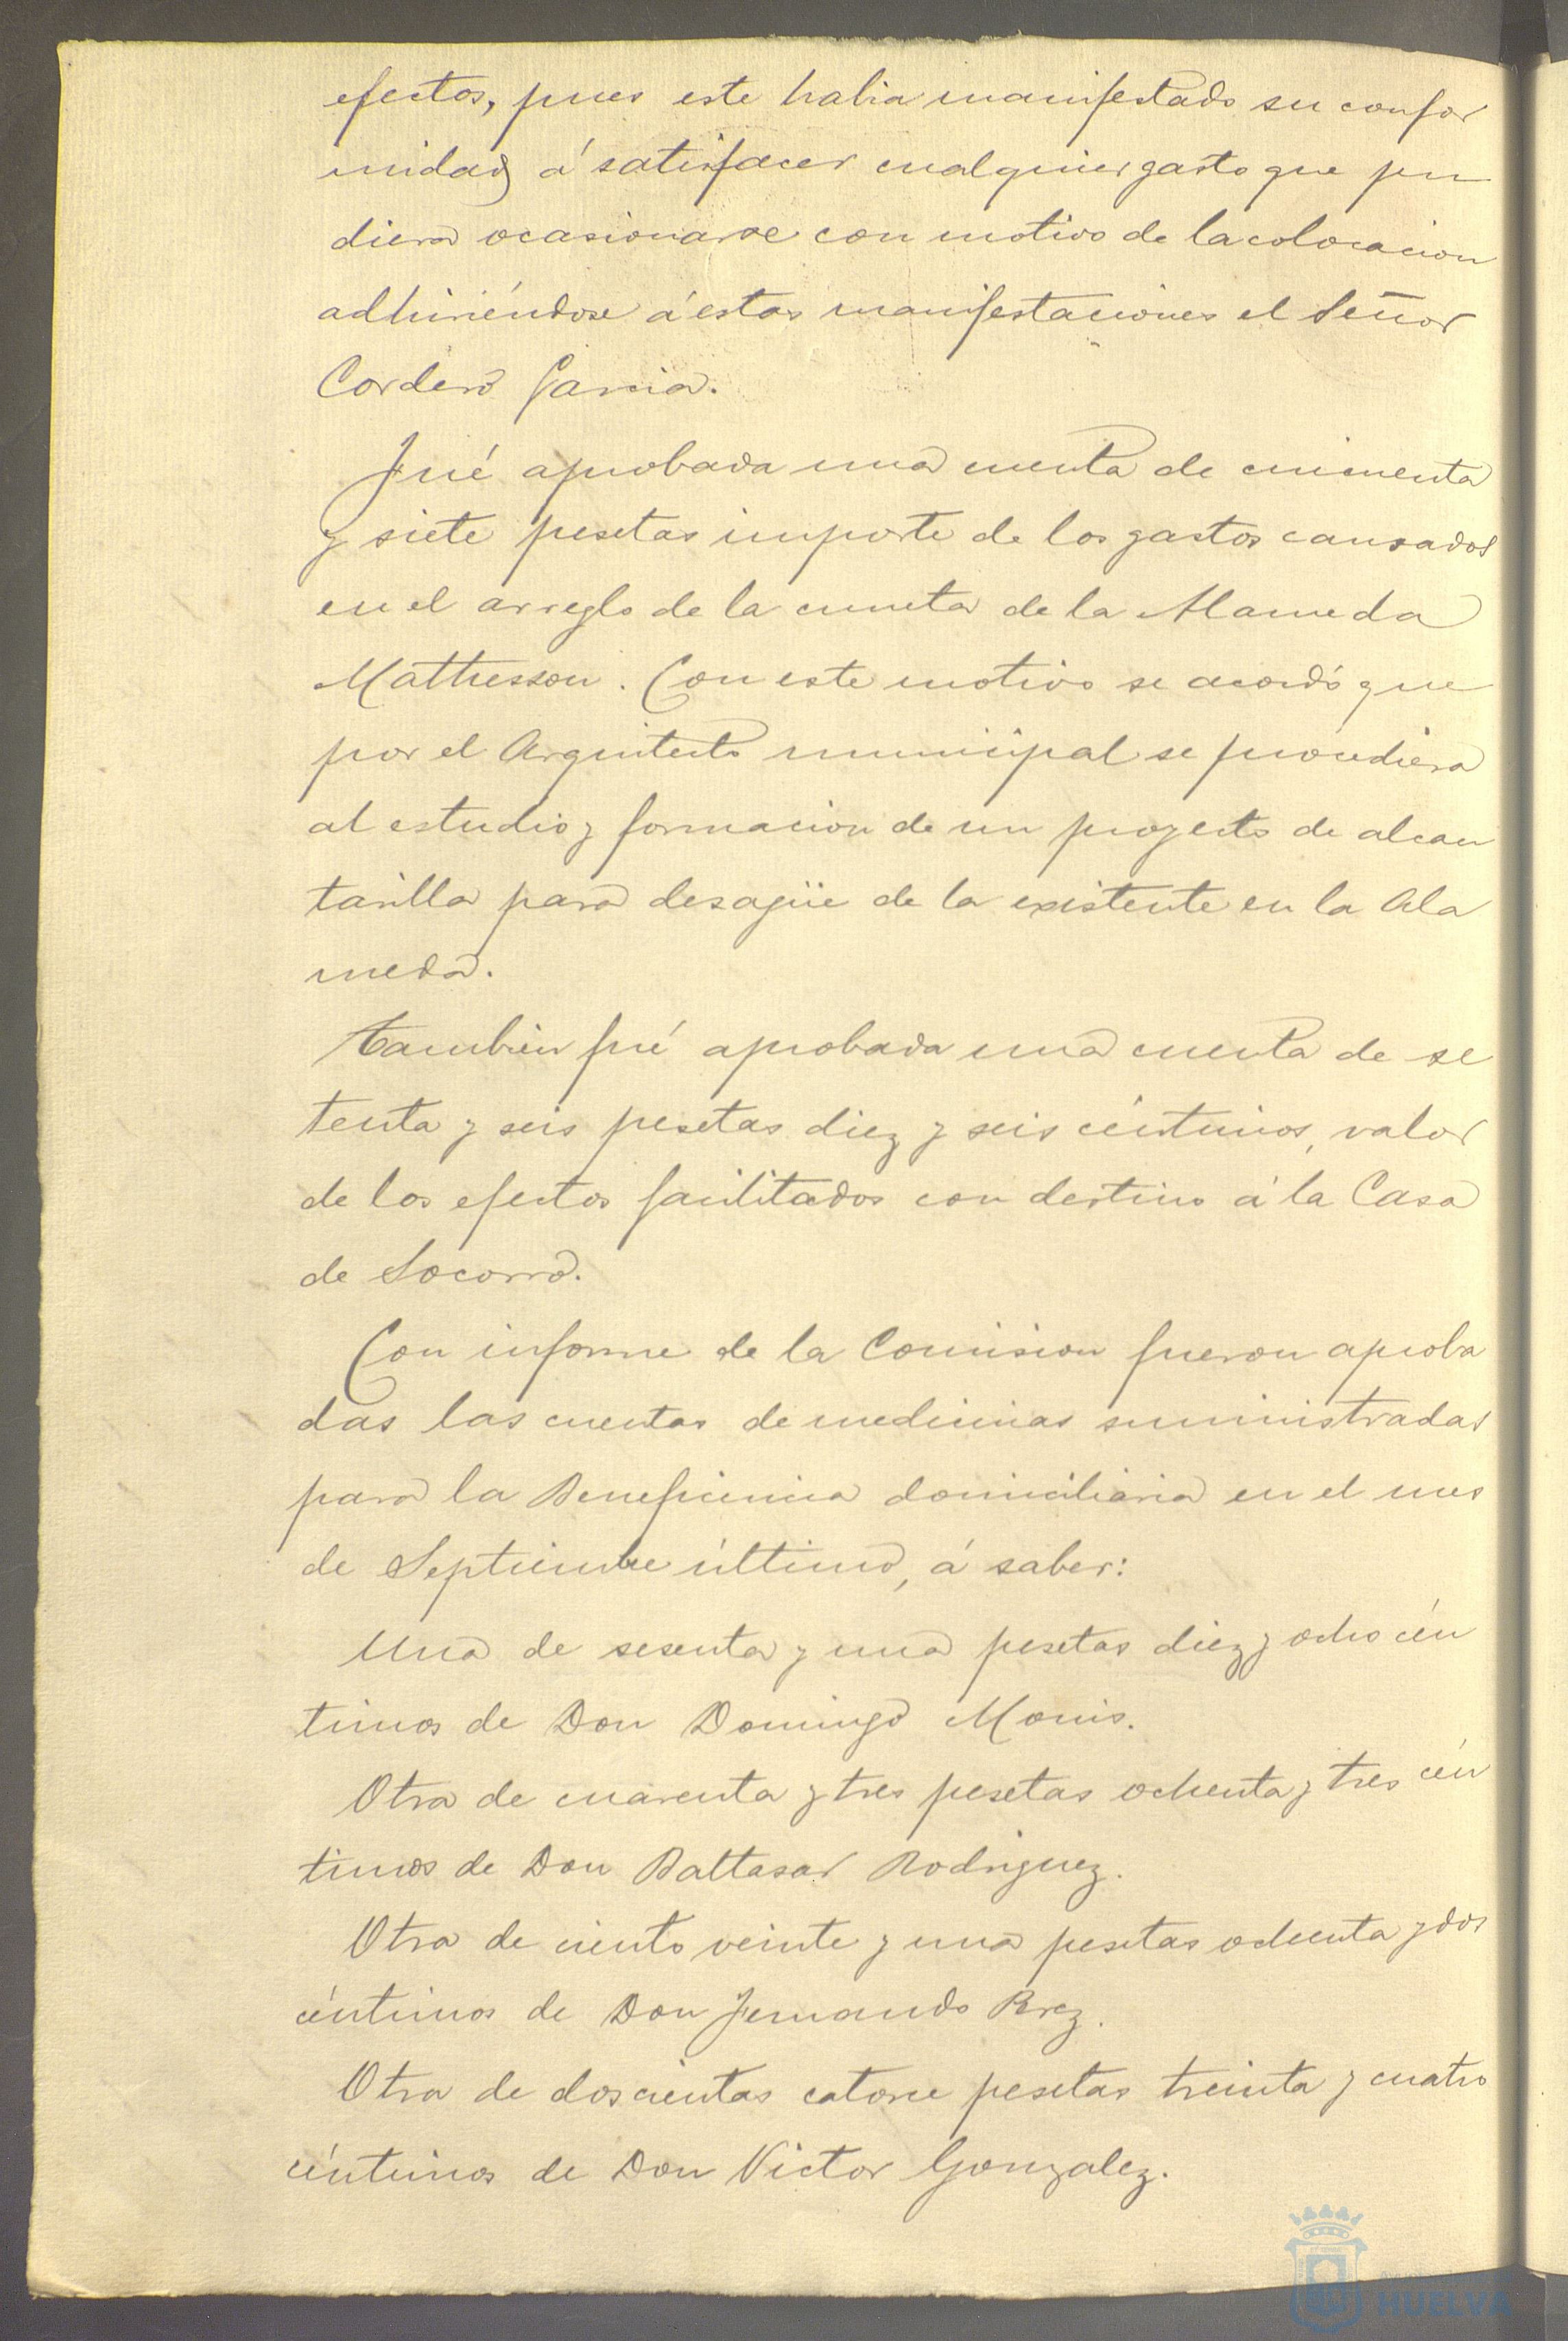 efectos, pues este habia manifestado su confor
midad á satisfacer cualquier gasto que pu
diera ocasionarse con motivo de la colocacion
adhiriéndose á estas manifestaciones el Señor
Cordero Garcia.
Fué aprobada una cuenta de cincuenta
y siete pesetas importe de los gastos causados
en el arreglo de la cuneta de la Alameda
Mathesson. Con este motivo se acordó que
por el Arquitecto municipal se procediera
al estudio y formacion de un proyecto de alcan
tarilla para desagüe de la existente en la Ala
meda.
Tambien fué aprobada una cuenta de se
tenta y seis pesetas diez y seis céntimos, valor
de los efectos facilitados con destino á la Casa
de Socorro.
Con informe de la Comision fueron aproba
das las cuentas de medicinas suministradas
para la Beneficencia domiciliaria en el mes
de Septiembre último, á saber:
Una de sesenta y una pesetas diez y ocho cén
timos de Don Domingo Monis.
Otra de cuarenta y tres pesetas ochenta y tres cén
timos de Don Baltasar Rodriguez.
Otra de ciento veinte y una pesetas ochenta y dos
céntimos de Don Fernando Perez.
Otra de doscientas catorce pesetas treinta y cuatro
céntimos de Don Victor Gonzalez.
HUELVA